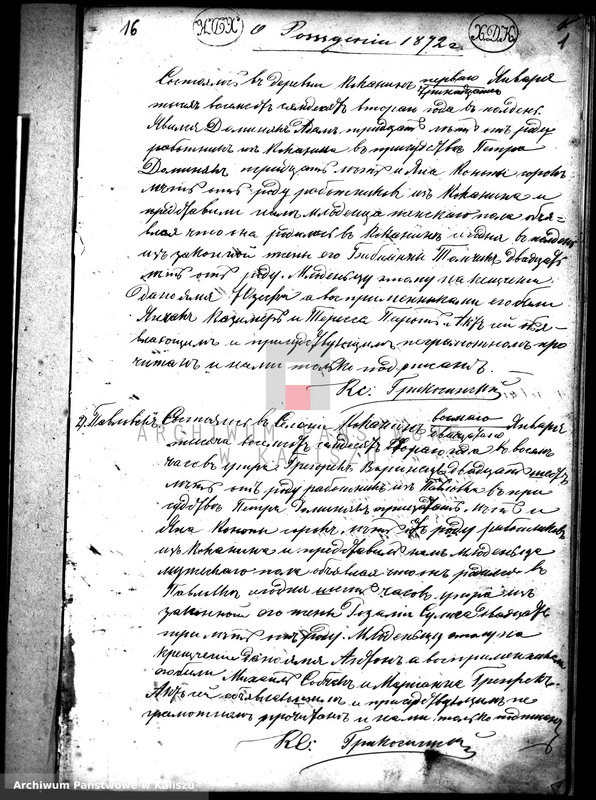 16 О Рожденіи 1872 г. 1
Состоялось въ деревни Коканинъ перваго Января
тринадцатаго
тысяча восемьсотъ семьдесятъ втораго года въ полдень.
Явился Доминякъ Адамъ тридцать лѣтъ отъ роду
работникъ изъ Коканина въ присутствіи Петра
Доминякъ тридцать лѣтъ и Яна Кононы сорокъ
лѣтъ отъ роду работниковъ изъ Коканина и
представили намъ младенца женскаго пола объя=
вляя что она родилась въ Коканинѣ сегодня въ полдень
изъ законной жены его Толчикъ двадцать
лѣтъ отъ роду. Младенцу этому на крещеніи
дано имя Юзефа а воспріемниками его были
Казимѣръ и Тереса Актъ сей объя-
вляющимъ и присутствующимъ неграмотнымъ про
читанъ и нами только подписанъ.
Кс:
2) Павловекъ Состоялось въ Селеніи Коканинъ восьмаго Января
двадцатаго
тысяча восемьсотъ семьдесятъ втораго года въ восемь
часовъ утра. Григорій двадцать шесть
лѣтъ отъ роду работникъ изъ въ при
сутствіи Петра Доминякъ тридцать лѣтъ и
Яна Кононы сорокъ лѣтъ отъ роду работниковъ
изъ Коканина и представилъ намъ младенца
мужескаго пола объявляя что онъ родился въ
сегодня часовъ утра изъ
законной его жены Розаліи двадцать
три лѣтъ отъ роду. Младенцу этому на
крещеніи дано имя Антонъ а воспріемниками
его были Михаилъ и Маріанна
Актъ сей объявляющимъ и присутствующимъ не
грамотнымъ прочитанъ и нами только подписанъ
Кс:
ARCHIWUM PAŃSTWOWE
W KALISZU
Archiwum Państwowe w Kaliszu